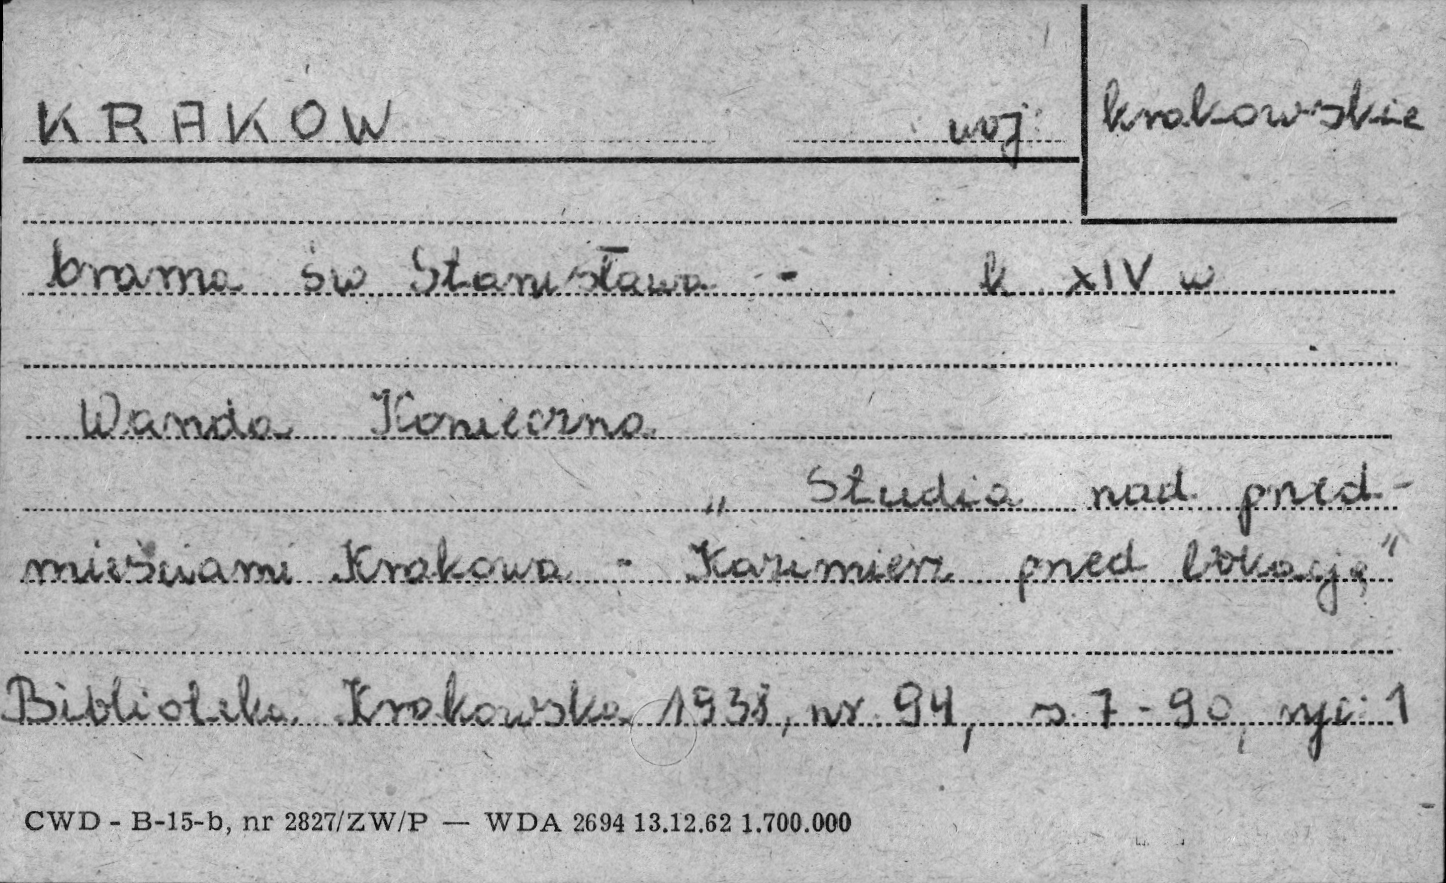 KRAKÓW woj. krakowskie
brama św Stanisława - k XIV w
Wanda Konieczna
„Studia nad przed-
mieściami Krakowa - Kazimierz przed lokacją"
Biblioteka Krakowska 1938, nr 94, s 7-90, ryc. 1
CWD - B-15-b, nr 2827/ZW/P — WDA 2694 13.12.62 1.700.000